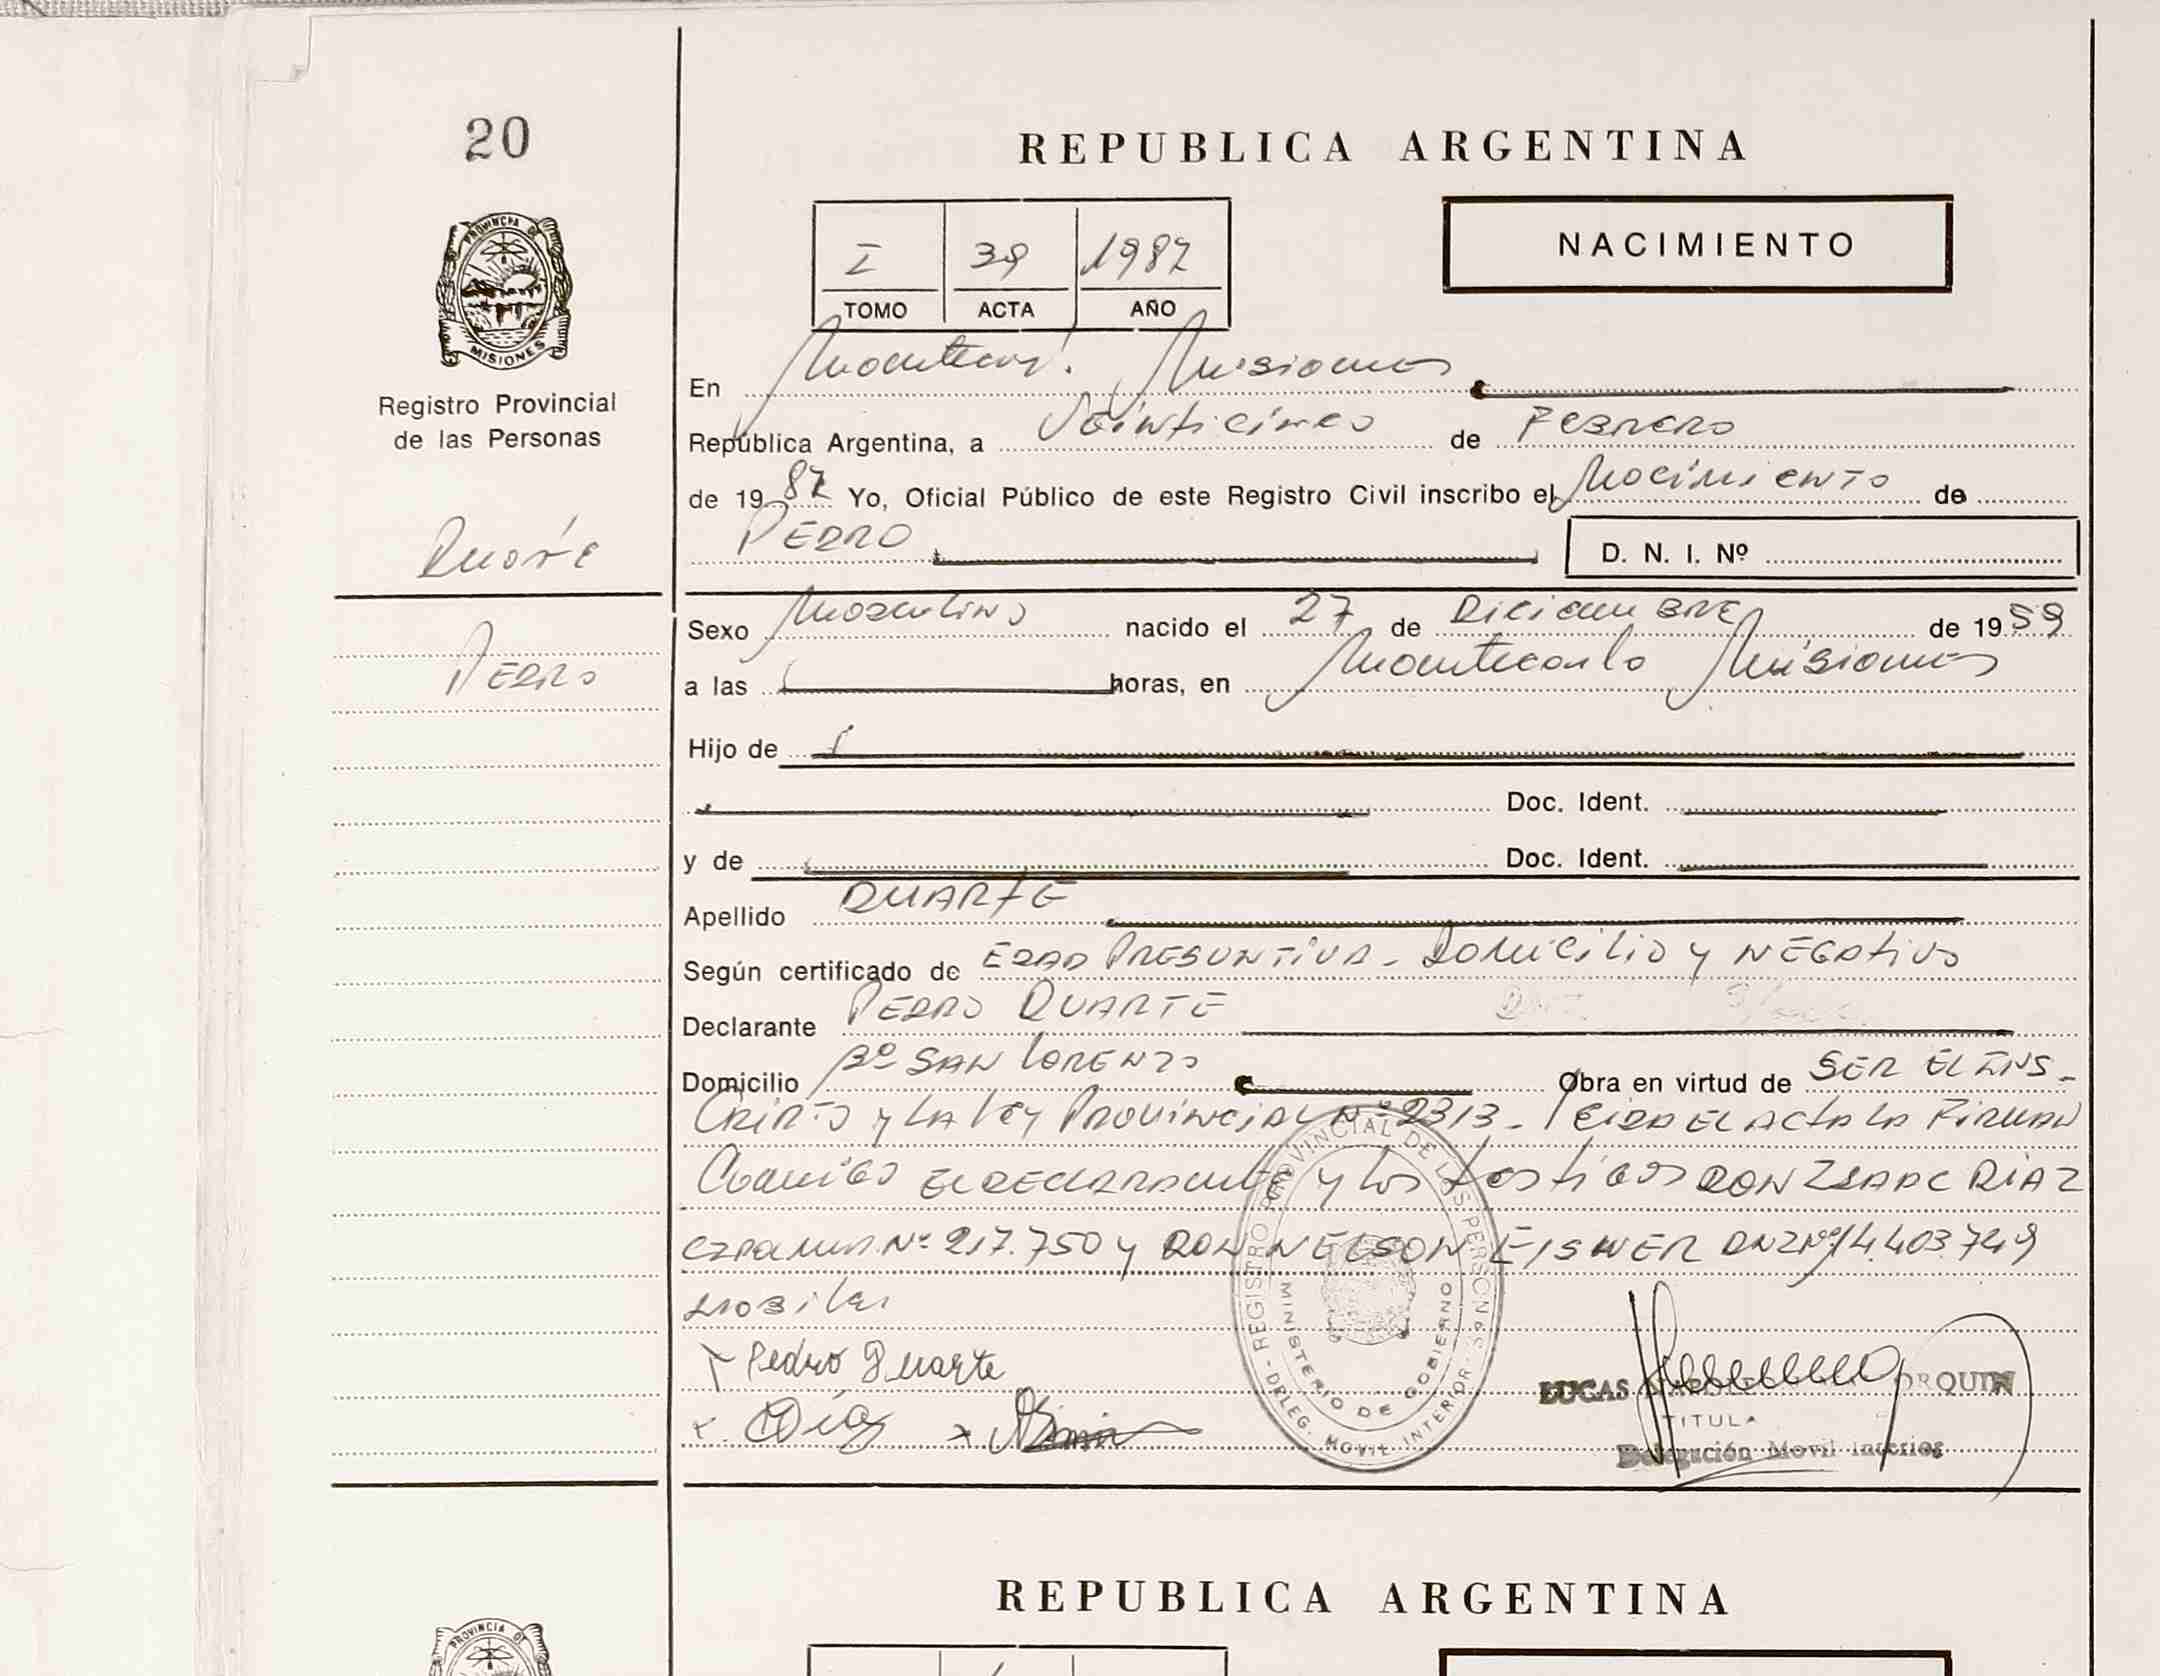 20
REPUBLICA ARGENTINA
PROVINCIA DE
MISIONES
Registro Provincial
de las Personas
I 39 1987
TOMO ACTA AÑO
NACIMIENTO
En Misiones
República Argentina, a Veinticinco de Febrero
de 1987 Yo, Oficial Público de este Registro Civil inscribo el Nacimiento de
PEDRO D. N. I. Nº
Duarte
Pedro
Sexo Masculino nacido el 27 de Diciembre de 1959
a las horas, en Montecarlo Misiones
Hijo de
Doc. Ident.
y de Doc. Ident.
Apellido DUARTE
Según certificado de EDAD PRESUNTIVA - Domicilio y NEGATIVO
Declarante PEDRO DUARTE
Domicilio Bº SAN LORENZO Obra en virtud de SER EL INS-
CRIPTO y LA LEY PROVINCIAL Nº 2313 - LEIDA EL ACTA LA FIRMAN
Conmigo EL DECLARANTE y LOS testigos DON ISAAC DIAZ
Nº 217.750 y DON NELSON EISNER DNI Nº 14.403.749
Pedro Duarte
Díaz
REGISTRO PROVINCIAL DE LAS PERSONAS - DELEG. MOVIL INTERIOR -
MINISTERIO DE GOBIERNO
LUCAS ORQUIN
TITULA
Delegación Movil Interior
REPUBLICA ARGENTINA
PROVINCIA DE